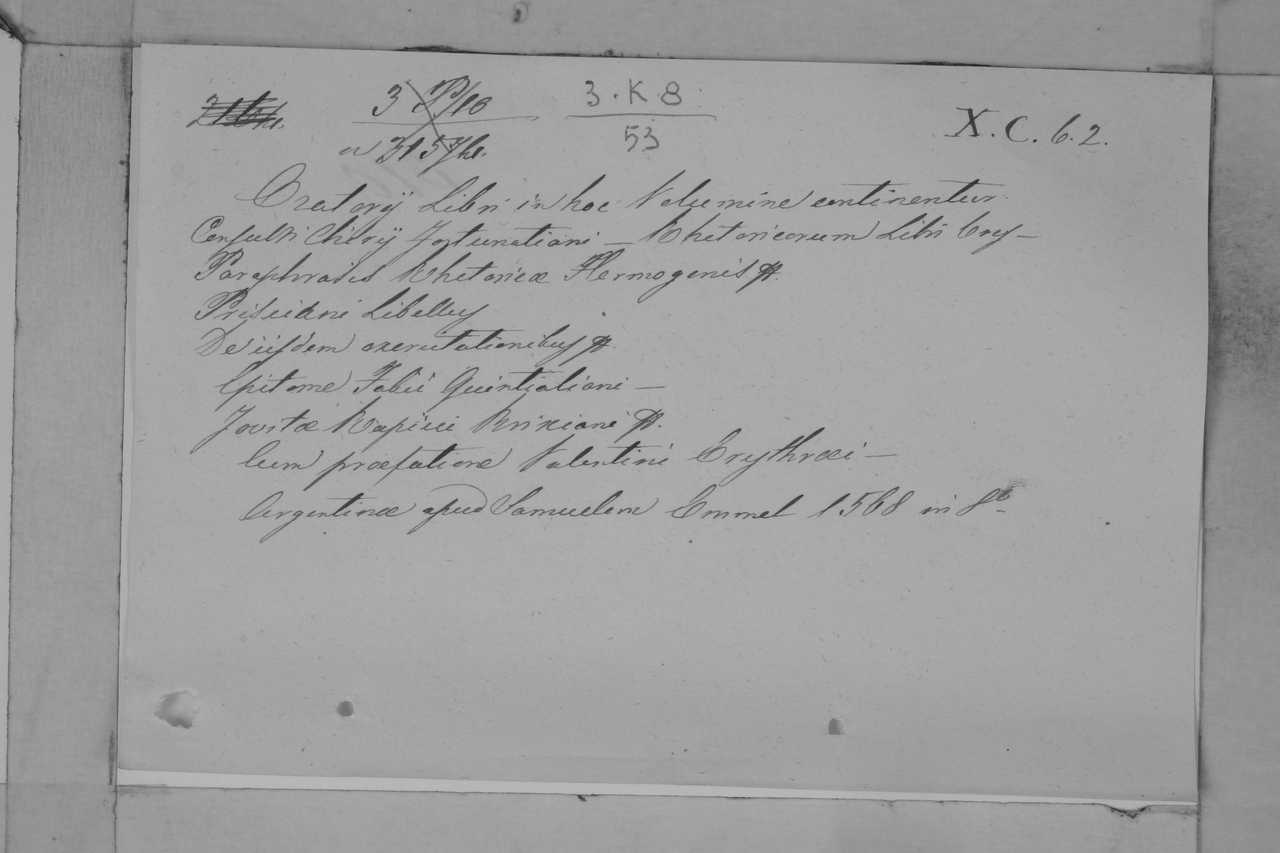 3 P/10
3.K 8
53
X.C. 6.2.
Oratorÿ Libri in hoc Volumine continentur
Consulti Chirÿ Fortunatiani — Rhetoricorum Libri tres —
Paraphrasis Rhetoricæ Hermogenis
Prisciani Libellus
De iisdem exercitationibus
Epitome Fabii Quintiliani —
Jovitæ Rapicii Brixiani
Cum præfatione Valentini Erythræi —
Argentinæ apud Samuelem Emmel 1568 in 8º